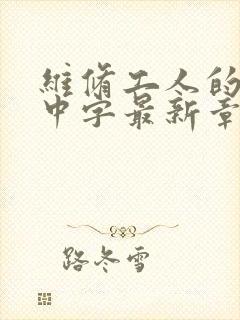 維修工人的
中字最新章
路冬雪